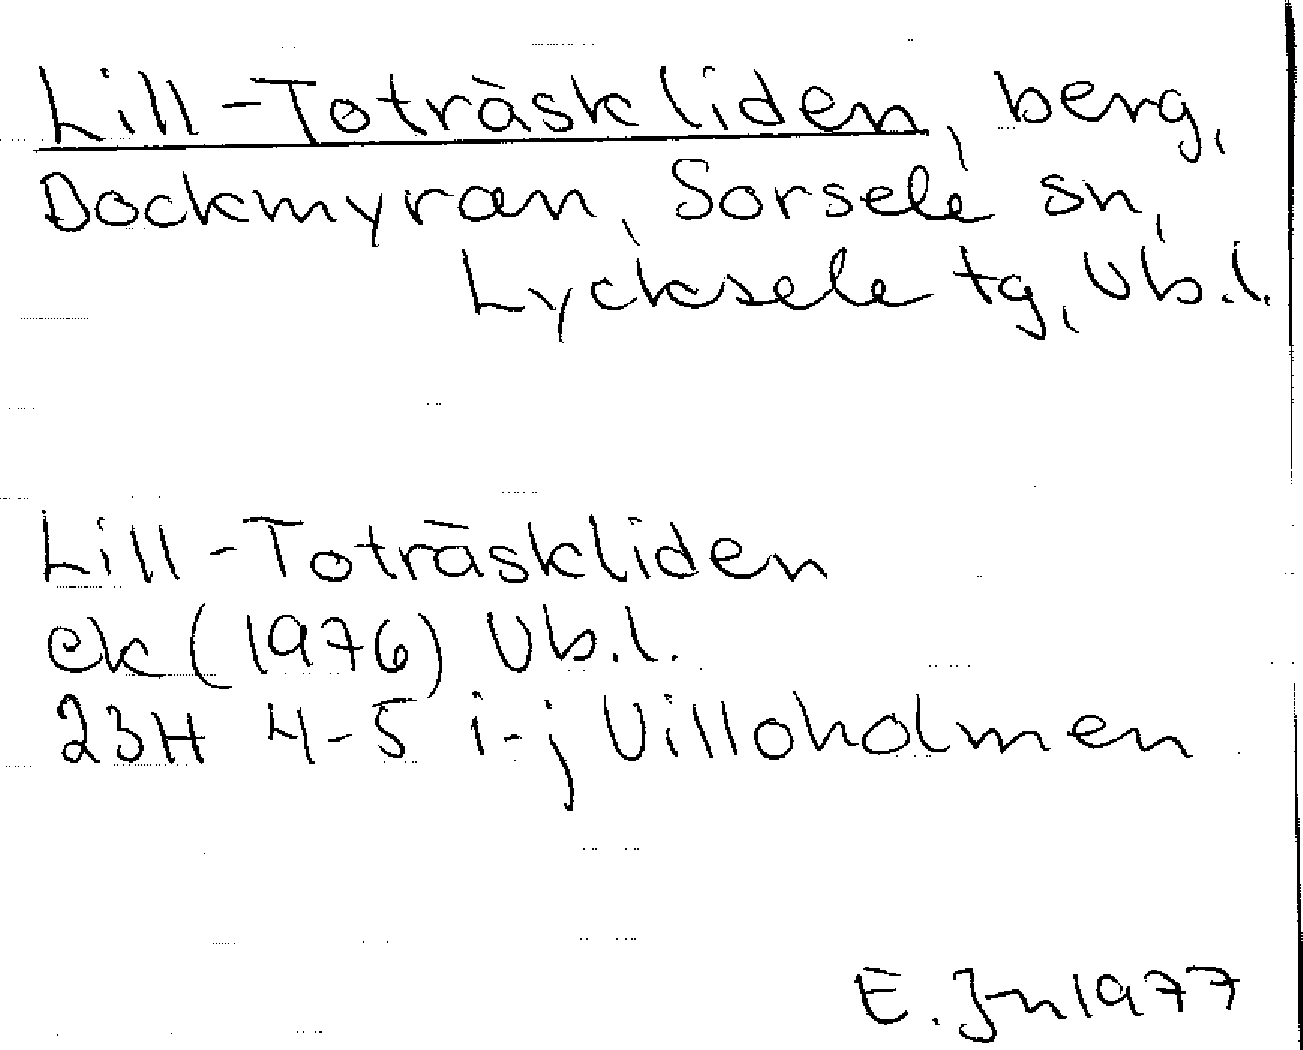 Lill-Toträskliden, berg,
Dockmyran, Sorsele sn,
Lycksele tg, Vb.l.
Lill-Toträskliden
ek (1976) Vb.l.
23H 4-5 i-j Villoholmen
E. Jn 1977